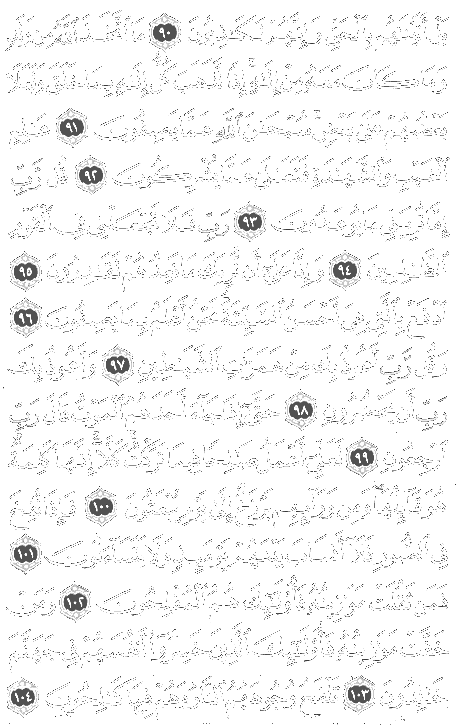 بَلْ أَتَيْنَٰهُم بِٱلْحَقِّ وَإِنَّهُمْ لَكَٰذِبُونَ ٩٠ مَا ٱتَّخَذَ ٱللَّهُ مِن وَلَدٍ
وَمَا كَانَ مَعَهُۥ مِنْ إِلَٰهٍ إِذًا لَّذَهَبَ كُلُّ إِلَٰهٍۭ بِمَا خَلَقَ وَلَعَلَا
بَعْضُهُمْ عَلَىٰ بَعْضٍ سُبْحَٰنَ ٱللَّهِ عَمَّا يَصِفُونَ ٩١ عَٰلِمِ
ٱلْغَيْبِ وَٱلشَّهَٰدَةِ فَتَعَٰلَىٰ عَمَّا يُشْرِكُونَ ٩٢ قُل رَّبِّ
إِمَّا تُرِيَنِّى مَا يُوعَدُونَ ٩٣ رَبِّ فَلَا تَجْعَلْنِى فِى ٱلْقَوْمِ
ٱلظَّٰلِمِينَ ٩٤ وَإِنَّا عَلَىٰٓ أَن نُّرِيَكَ مَا نَعِدُهُمْ لَقَٰدِرُونَ ٩٥
ٱدْفَعْ بِٱلَّتِى هِىَ أَحْسَنُ ٱلسَّيِّئَةَ نَحْنُ أَعْلَمُ بِمَا يَصِفُونَ ٩٦
وَقُل رَّبِّ أَعُوذُ بِكَ مِنْ هَمَزَٰتِ ٱلشَّيَٰطِينِ ٩٧ وَأَعُوذُ بِكَ
رَبِّ أَن يَحْضُرُونِ ٩٨ حَتَّىٰٓ إِذَا جَآءَ أَحَدَهُمُ ٱلْمَوْتُ قَالَ رَبِّ
ٱرْجِعُونِ ٩٩ لَعَلِّىٓ أَعْمَلُ صَٰلِحًا فِيمَا تَرَكْتُ كَلَّآ إِنَّهَا كَلِمَةٌ
هُوَ قَآئِلُهَا وَمِن وَرَآئِهِم بَرْزَخٌ إِلَىٰ يَوْمِ يُبْعَثُونَ ١٠٠ فَإِذَا نُفِخَ
فِى ٱلصُّورِ فَلَآ أَنسَابَ بَيْنَهُمْ يَوْمَئِذٍ وَلَا يَتَسَآءَلُونَ ١٠١
فَمَن ثَقُلَتْ مَوَٰزِينُهُۥ فَأُو۟لَٰٓئِكَ هُمُ ٱلْمُفْلِحُونَ ١٠٢ وَمَنْ
خَفَّتْ مَوَٰزِينُهُۥ فَأُو۟لَٰٓئِكَ ٱلَّذِينَ خَسِرُوٓا۟ أَنفُسَهُمْ فِى جَهَنَّمَ
خَٰلِدُونَ ١٠٣ تَلْفَحُ وُجُوهَهُمُ ٱلنَّارُ وَهُمْ فِيهَا كَٰلِحُونَ ١٠٤